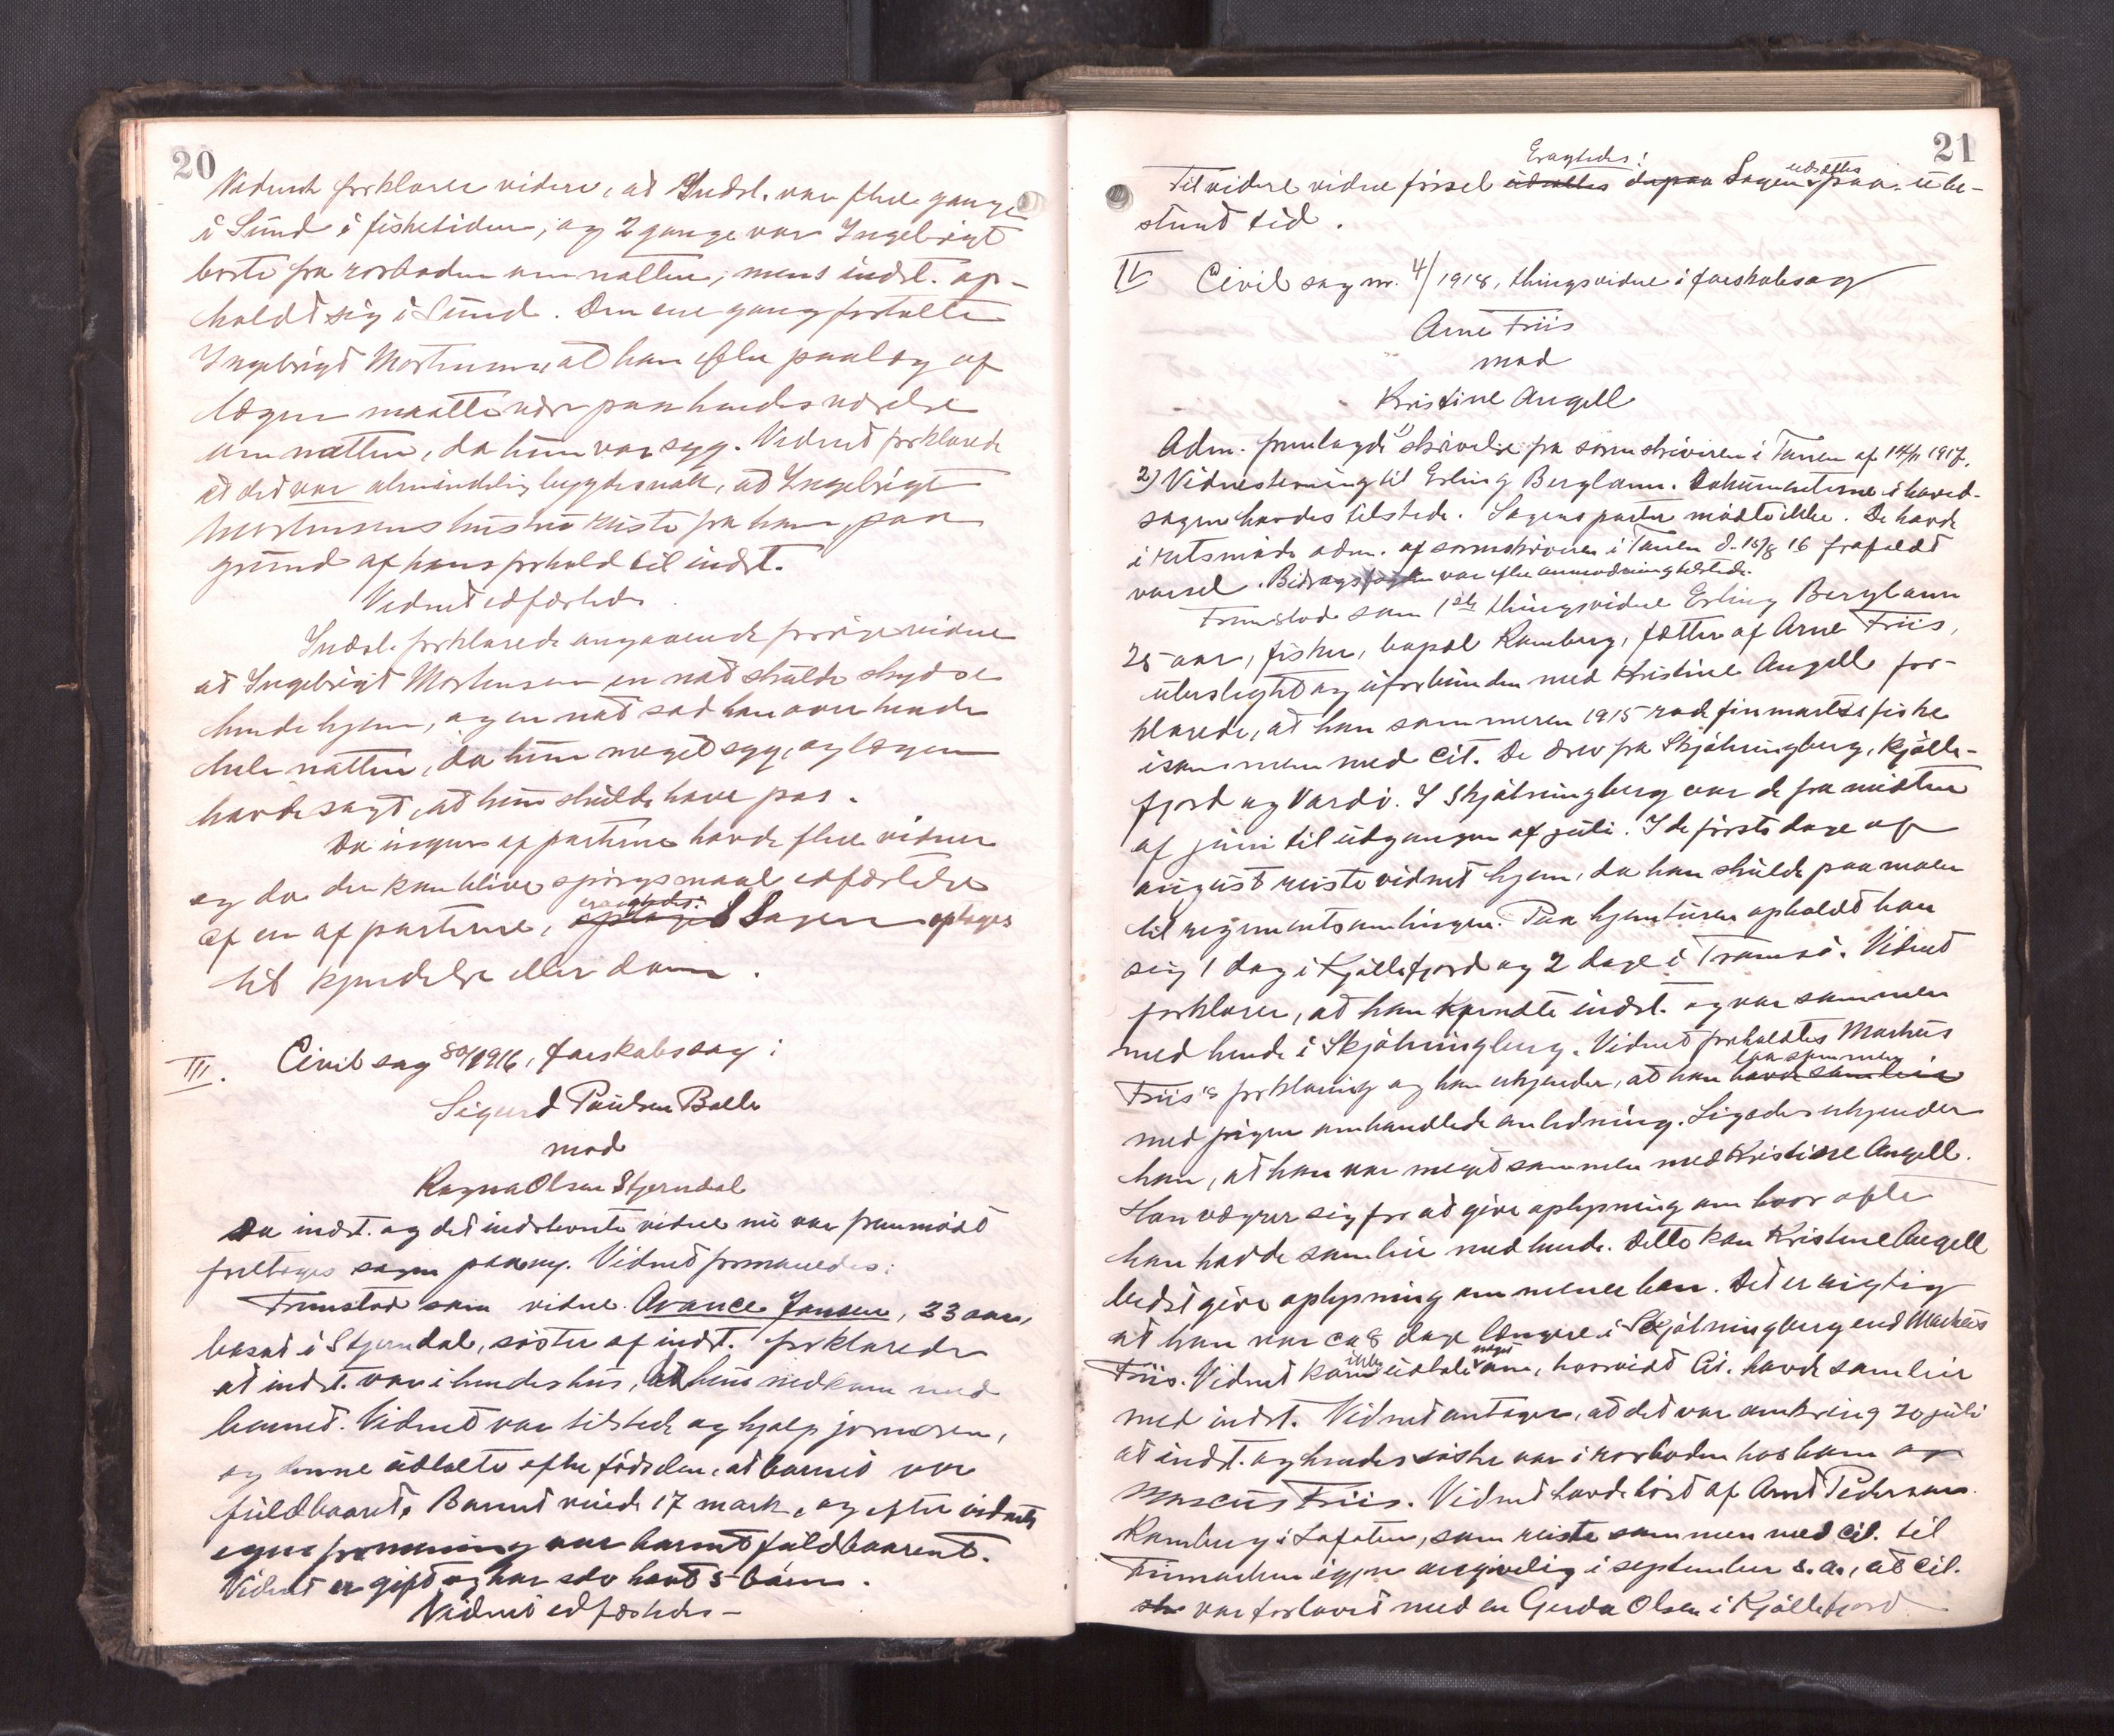 20
Vidnet forklarer videre, at Indst. var flere gange
i Sund i fisketiden, og 2 gange var Ingebrigt
borte fra rorboden om natten, mens indst. op-
holdt sig i Sund. Den ene gang fortalte
Ingebrigt Mortensen, at han efter paalæg af
lægen maatte være paa hendes værelse
om natten, da hun var syg. Vidnet forklarede
at det var almindelig bygdesnak, at Ingebrigt
Mortensens hustru reiste fra ham, paa
grund af hans forhold til indst.
Vidnet edfæstedes
Indst. forklarede angaaende forrige vidne
at Ingebrigt Mortensen en nat skulde skydse
hende hjem, og en nat sad han over hende
hele natten, da hun meget syg, og lægen
havde sagt, at hun skulde have pas.
Da ingen af parterne havde flere vidner
og da der kan blive spörgsmaal edfæstelse
af en af parterne, eragtedes: Sagen optages
til kjendelse eller dom.
III. Civil sag 80/1916, farskabssag:
Sigurd Paulsen Balle
mod
Ragna Olsen Stjerndal
Da indst. og det indstevnte vidne nu var fremmödt
foretoges sagen paany. Vidnet formanedes:
Fremstod som vidne Avance Jansen, 33 aar,
bosat i Stjerndal, söster af indst. forklarede
at indst. var i hendes hus, da hun nedkom med
barnet. Vidnet var tilstede og hjalp jormoren,
og denne udtalte efter födselen, at barnet var
fuldbaaret. Barnet veiede 17 mark, og efter vidnets
egen formening var barnet fuldbaarent.
Vidnet er gift og har selv havt 5 börn.
Vidnet edfæstedes –
21
Eragtedes:
Til videre vidneförsel udsattes Sagen udsættes paa ube-
stemt tid.
IV Civil sag nr. 4/1918, thingsvidne i farskabssag
Arne Friis
mod
Kristine Angell
Adm. fremlagde 1) skrivelse fra sorenskriveren i Tanen af 14/11 1917.
2) Vidnestevning til Erling Berglann. Dokumenterne i hoved-
sagen havdes tilstede. Sagens parter mödte ikke. De havde
i retsmöde adm. af sorenskriveren i Tanen d. 18/8 16 frafaldt
varsel. Bidragsfogden var efter anmodning tilstede.
Fremstod som 1ste thingsvidne Erling Berglann
25 aar, fisker, bopæl Ramberg, fætter af Arne Friis,
ubeslegtet og uforbunden med Kristine Angell for-
klarede, at han sommeren 1915 rode finmarksfiske
isammen med Cit. De drev fra Skjötningberg, Kjölle-
fjord og Vardö. I Skjötningberg var de fra midten
af juni til udgangen af juli. I de förste dage af
august reiste vidnet hjem, da han skulde paa moen
til regimentsamlingen. Paa hjemturen opholdt han
sig 1 dag i Kjöllefjord og 2 dage i Tromsö. Vidnet
forklarer, at han kjendte indst. og var sammen
med hende i Skjötningberg. Vidnet foreholdtes Markus
Friis's forklaring og han erkjender, at han laa sammen havde samleie
med pigen omhandlede anledning. Ligesaa erkjender
han, at han var meget sammen med Kristine Angell.
Han vægrer sig for at give oplysning om hvor ofte
han havde samleie med hende. Dette kan Kristine Angell
bedst give oplysning om mener han. Det er rigtig
at han var ca 8 dage længere i Skjötningberg end Markus
Friis. Vidnet kan ikke udtale noget om, hvorvidt Cit. havde samleie
med indst. Vidnet antager, at det var omkring 20 juli
at indst. og hendes söster var i rorboden hos ham og
Marcus Friis. Vidnet havde hört af Arnt Pedersen
Ramberg i Lofoten, som reiste sammen med cit. til
Finmarken igjen angivelig i september s.a., at cit.
var forlovet med en Gerda Olsen i Kjöllefjord